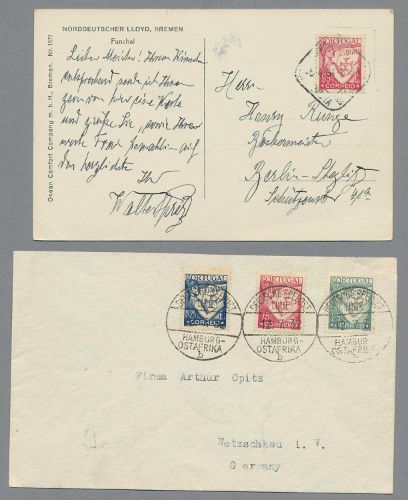 NORDDEUTSCHER LLOYD, BREMEN
Funchal
Ocean Comfort Company m. b. H., Bremen. Nr. 1077
Lieber Meister! Ihrem Wunsche
entsprechend sende ich Ihnen
gern von hier eine Karte
und grüße Sie, sowie Ihre
werte Frau Gemahlin auf
das herzlichste
Ihr
Walter
PORTUGAL
CORREIO
Herrn
Henry Runge
Bäckermeister
Berlin-Steglitz
PORTUGAL
CORREIO
PORTUGAL
CORREIO
PORTUGAL
CORREIO
DEUTSCHE SEEPOST
HAMBURG-
OSTAFRIKA
b
DEUTSCHE SEEPOST
HAMBURG-
OSTAFRIKA
b
DEUTSCHE SEEPOST
HAMBURG-
OSTAFRIKA
b
Firma Arthur Opitz
Netzschkau i. V.
Germany